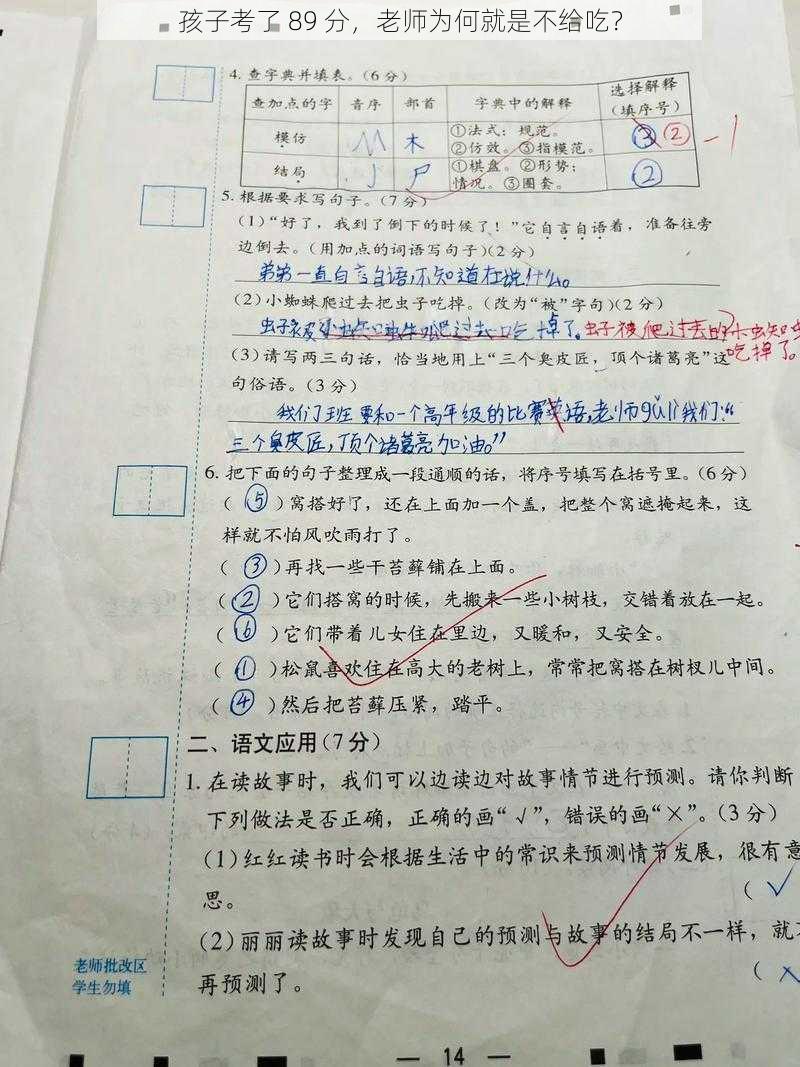 孩子考了 89 分，老师为何就是不给吃？
4. 查字典并填表。（6分）
查加点的字 音序 部首 字典中的解释 选择解释（填序号）
模仿 M 木 ①法式；规范。②仿效。③指模范。 ③ ② -1
结局 J 尸 ①棋盘。②形势；情况。③圈套。 ②
5. 根据要求写句子。（7分）
（1）“好了，我到了倒下的时候了！”它自言自语着，准备往旁
边倒去。（用加点的词语写句子）（2分）
弟弟一直自言自语，不知道在说什么。
（2）小蜘蛛爬过去把虫子吃掉。（改为“被”字句）（2分）
虫子被小蜘蛛爬过去吃掉了。虫子被爬过去的小蜘蛛
吃掉了。
（3）请写两三句话，恰当地用上“三个臭皮匠，顶个诸葛亮”这
句俗语。（3分）
我们班要和一个高年级的比赛英语，老师gǔ li我们：“
三个臭皮匠，顶个诸葛亮加油。”
6. 把下面的句子整理成一段通顺的话，将序号填写在括号里。（6分）
（ ⑤ ）窝搭好了，还在上面加一个盖，把整个窝遮掩起来，这
样就不怕风吹雨打了。
（ ③ ）再找一些干苔藓铺在上面。
（ ② ）它们搭窝的时候，先搬来一些小树枝，交错着放在一起。
（ ⑥ ）它们带着儿女住在里边，又暖和，又安全。
（ ① ）松鼠喜欢住在高大的老树上，常常把窝搭在树杈儿中间。
（ ④ ）然后把苔藓压紧，踏平。
二、语文应用（7分）
1. 在读故事时，我们可以边读边对故事情节进行预测。请你判断
下列做法是否正确，正确的画“√”，错误的画“×”。（3分）
（1）红红读书时会根据生活中的常识来预测情节发展，很有意
思。 （ √
（2）丽丽读故事时发现自己的预测与故事的结局不一样，就不
再预测了。 （ ×
老师批改区
学生勿填
— 14 —